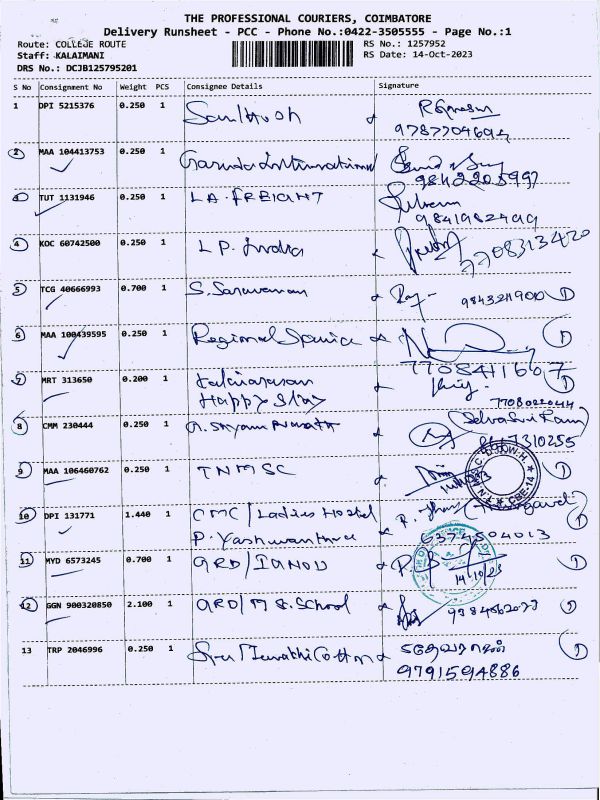 THE PROFESSIONAL COURIERS, COIMBATORE
Delivery Runsheet - PCC - Phone No.:0422-3505555 - Page No.:1
Route: COLLEGE ROUTE RS No.: 1257952
Staff: KALAIMANI RS Date: 14-Oct-2023
DRS No.: DCJB125795201
S No Consignment No Weight PCS Consignee Details Signature
1 DPI 5215376 0.250 1 Santhosh
9787704694
2 MAA 104413753 0.250 1 International
9842205997
3 TUT 1131946 0.250 1 LA. FREIGHT
9841982499
4 KOC 60742500 0.250 1 L P. India
7708313420
5 TCG 40666993 0.700 1 S. Saravanan 9843211900 1
6 MAA 100439595 0.250 1 Regional 1
7708411667
7 MRT 313650 0.200 1 1
Happy Stay 7708022044
8 CMM 230444 0.250 1 (Selva Sri Ram)
9 MAA 106460762 0.250 1 TNMSC 1
10 DPI 131771 1.440 1 CMC/Ladies Hostel
P. Yashwanthra 6374504013 1
11 MYD 6573245 0.700 1 GRD/IGNOU 14/10/23 1
12 GGN 900320850 2.100 1 GRD/M &. School 1
13 TRP 2046996 0.250 1 Sree Cotton 1
9791594886